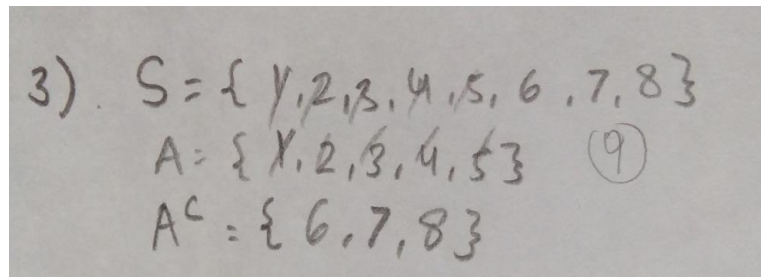 3) S = { 1, 2, 3, 4, 5, 6, 7, 8 }
A = { 1, 2, 3, 4, 5 } 9
A^c = { 6, 7, 8 }